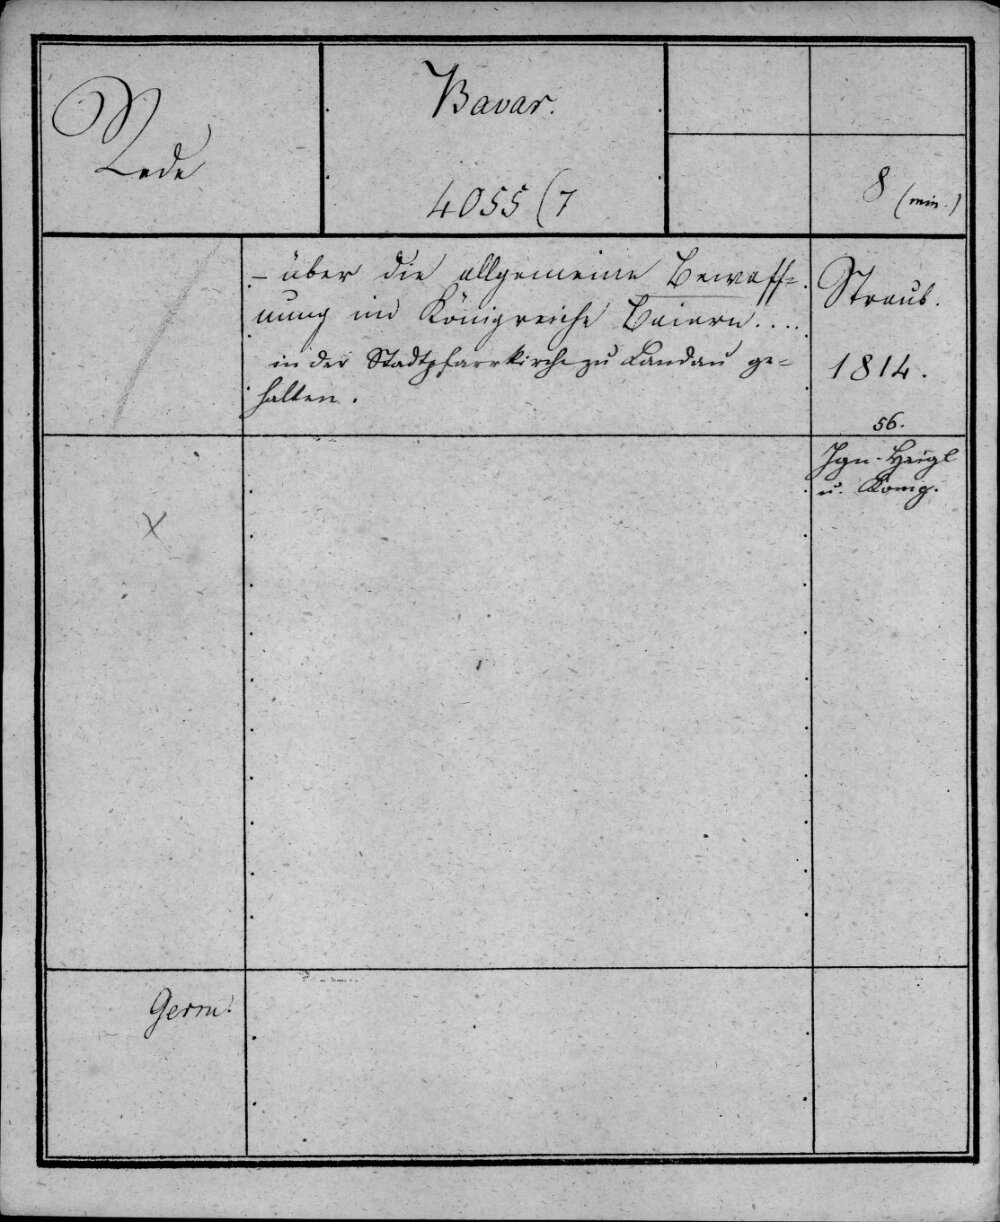 Rede
Bavar.
4055 (7
8 (min.)
– über die allgemeine Bewaff=
nung im Königreiche Baiern....
in der Stadtpfarrkirche zu Landau ge=
halten.
Straub.
1814.
56.
Ign. Heigl
u. Komp.
X
Germ.